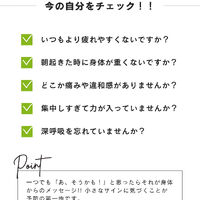 今の自分をチェック！！
いつもより疲れやすくないですか？
朝起きた時に身体が重くないですか？
どこか痛みや違和感がありませんか？
集中しすぎて力が入っていませんか？
深呼吸を忘れていませんか？
Point
一つでも「あ、そうかも！」と思ったらそれが身体
からのメッセージ!! 小さなサインに気づくことが
予防の第一歩です。